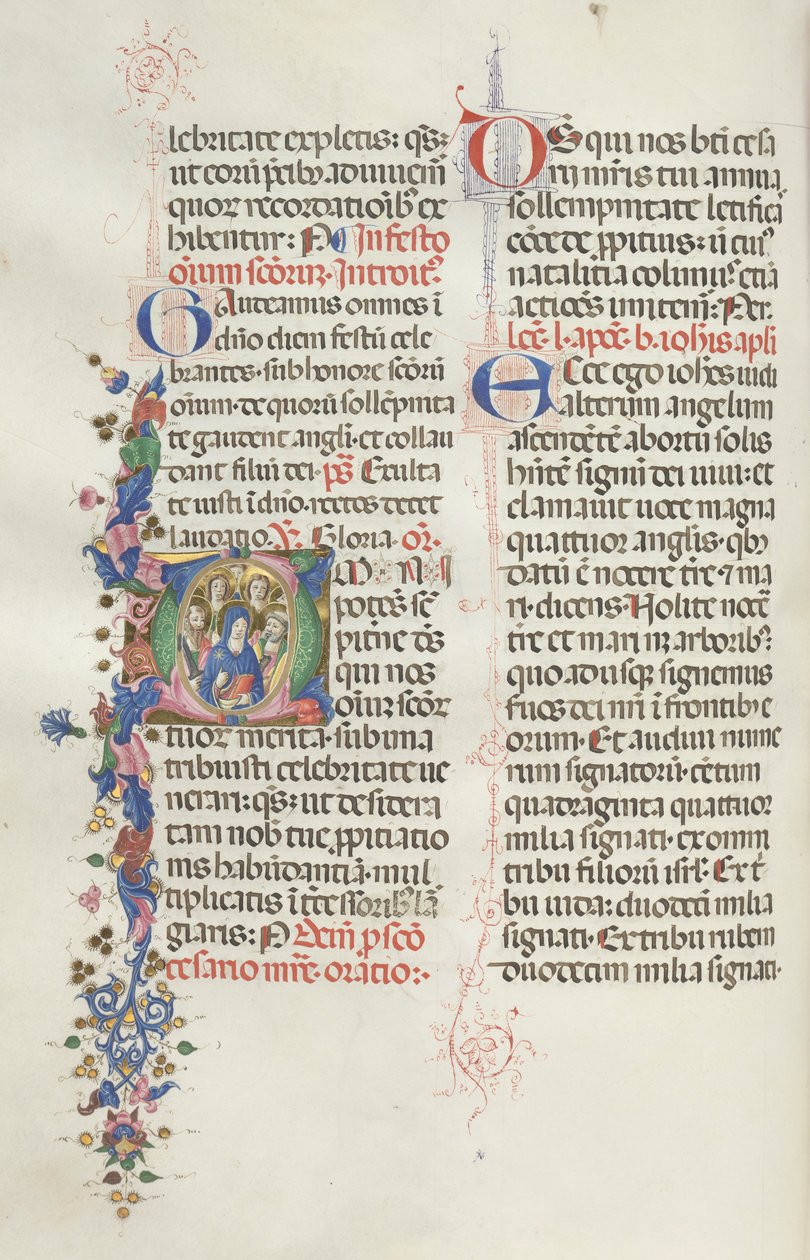 lebritate expletis: qs:
ut eoru͂ p̄cib⁊ adiuuem͂
quor̄ recordatioi͂b⁊ ex
hibentur: P In festo
oi͂um sc͂orum. Introit⁊.
Gaudeamus omnes i͂
dn͂o diem festu͂ cele
brantes. sub honore sc͂oru͂
oi͂um. de quoru͂ solle͂pnita
te gaudent angli. et collau
dant filiu͂ dei. ps͂ Exulta
te iusti i͂ dn͂o. rectos decet
laudatio. V⁊. Gloria. or͂.
OMNIS
pote͂s se͂
pit͂ne d͂s
qui nos
oi͂uz sc͂or͂
tuor͂ merita. sub una
tribuisti celebritate ue
nerari: qs: ut desidera
tam nob͂ tue ꝓpitiatio
nis habu͂dantia. mul
tiplicatis i͂tercessorib⁊ la͂
giaris: P Dein͂ p sc͂o
cesario mr͂e. oratio:.
DS qui nos bt͂i cesa
rij mr͂is tui annua
sollempnitate letifica͂
co͂cede ꝓpitius: ut cui⁊
natalitia colimus eti͂a
actio͂es imitem͂: Per.
lec͂. l. apoc͂. b. ioh͂is apl͂i
ECce ego ioh͂es uidi
alterum angelum
ascende͂te͂ ab ortu solis
h͂nte͂ signu͂ dei uiui: et
clamauit uoce magna
quattuor angl͂is. qb⁊
datu͂ e͂ nocere t͂re ⁊ ma
ri. dicens. Nolite noce͂
t͂re et mari nz arborib⁊
quo adusq⁊ signemus
suos dei n͂ri i͂ frontib⁊ e
orum. Et audiui nume
rum signatoru͂. ce͂tum
quadraginta quattuor
milia signati. ex omni
tribu filioru͂ isrl͂. Ex t͂
bu iuda: duodeci͂ milia
signati. Ex tribu ruben
duodecim milia signati.